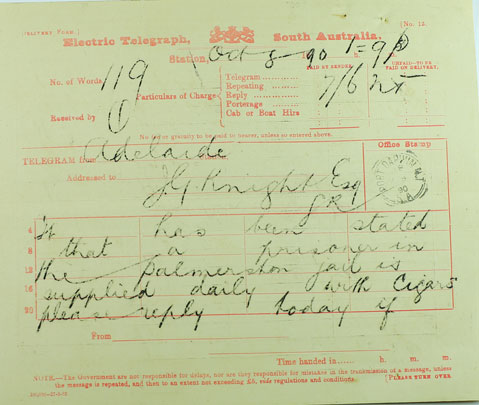 (DELIVERY FORM.) [No. 12.
Electric Telegraph, South Australia.
Station, Oct 8 90
PAID BY SENDER. UNPAID—TO BE PAID ON DELIVERY.
No. of Words 119
Particulars of Charge
Telegram 7/6
Repeating
Reply
Porterage
Cab or Boat Hire
Received by
No fee or gratuity to be paid to bearer, unless so entered above.
TELEGRAM from Adelaide
Office Stamp
Addressed to J G Knight Esq
G R
it has been stated
4
that a prisoner in
8
12 the Palmerston jail is
16 supplied daily with cigars
20 please reply today if
From
Time handed in h. m. m.
NOTE.—The Government are not responsible for delays, nor are they responsible for mistakes in the transmission of a message, unless
the message is repeated, and then to an extent not exceeding £5, vide regulations and conditions. [PLEASE TURN OVER